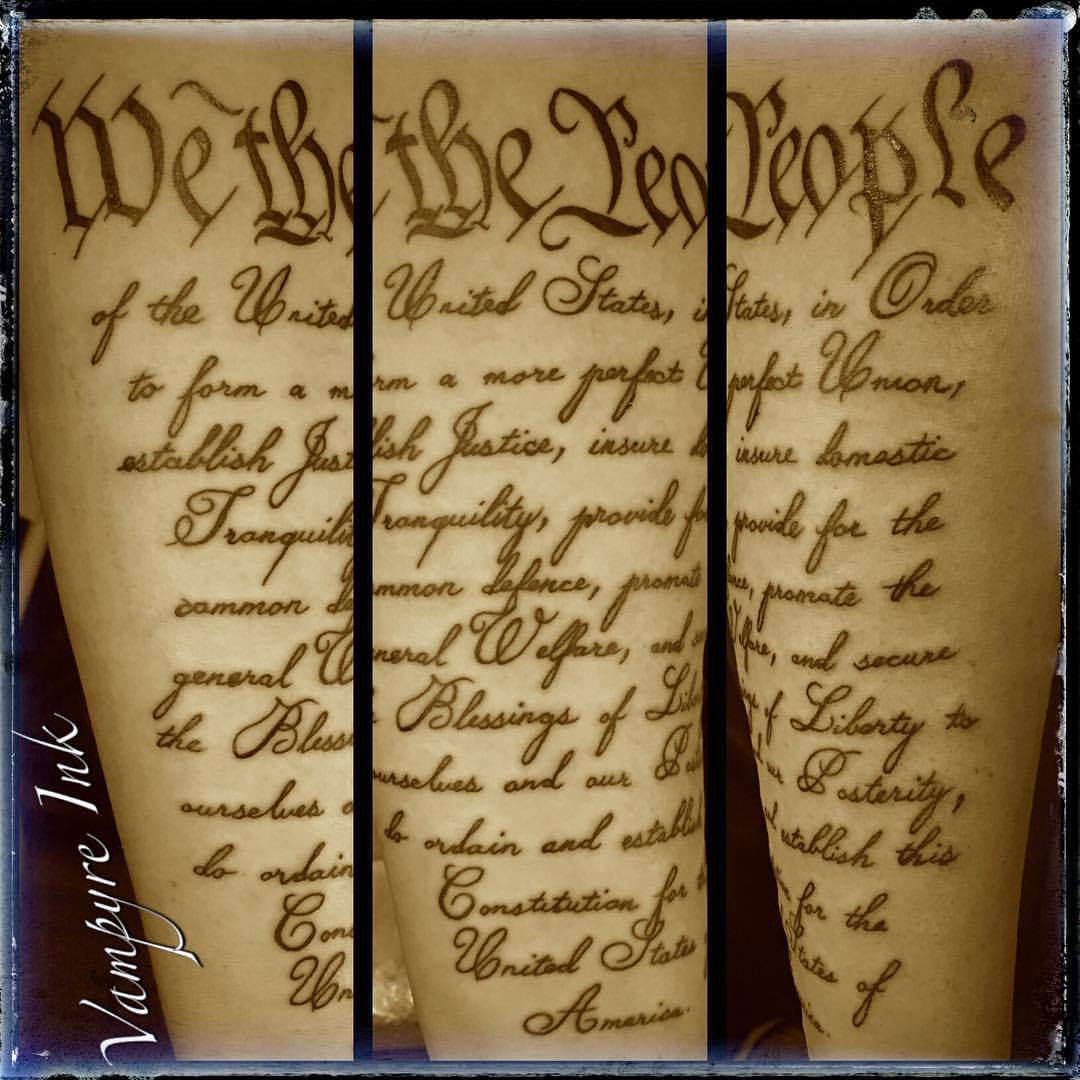 We the
of the United
to form a m
establish Just
Tranquili
common de
general W
the Bless
ourselves a
do ordain
Con
Un
the Peo
United States, i
rm a more perfect U
lish Justice, insure d
Tranquility, provide fo
mmon defence, promote
neral Welfare, and se
Blessings of Liber
urselves and our Post
do ordain and establish
Constitution for t
United States
America.
People
States, in Order
perfect Union,
insure domestic
provide for the
nce, promote the
Welfare, and secure
of Liberty to
ur Posterity,
establish this
for the
States of
Vampyre Ink